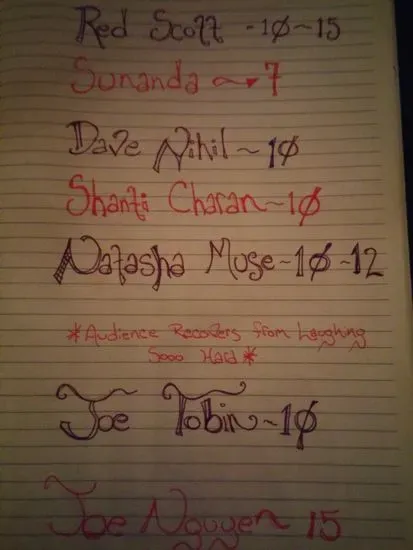 Red Scott -10-15
Sunanda ~→ 7
Dave Nihil ~ 10
Shanti Charan ~ 10
Natasha Muse ~ 10 - 12
*Audience Recovers from Laughing
Sooo Hard*
Joe Tobin ~ 10
Joe Nguyen 15